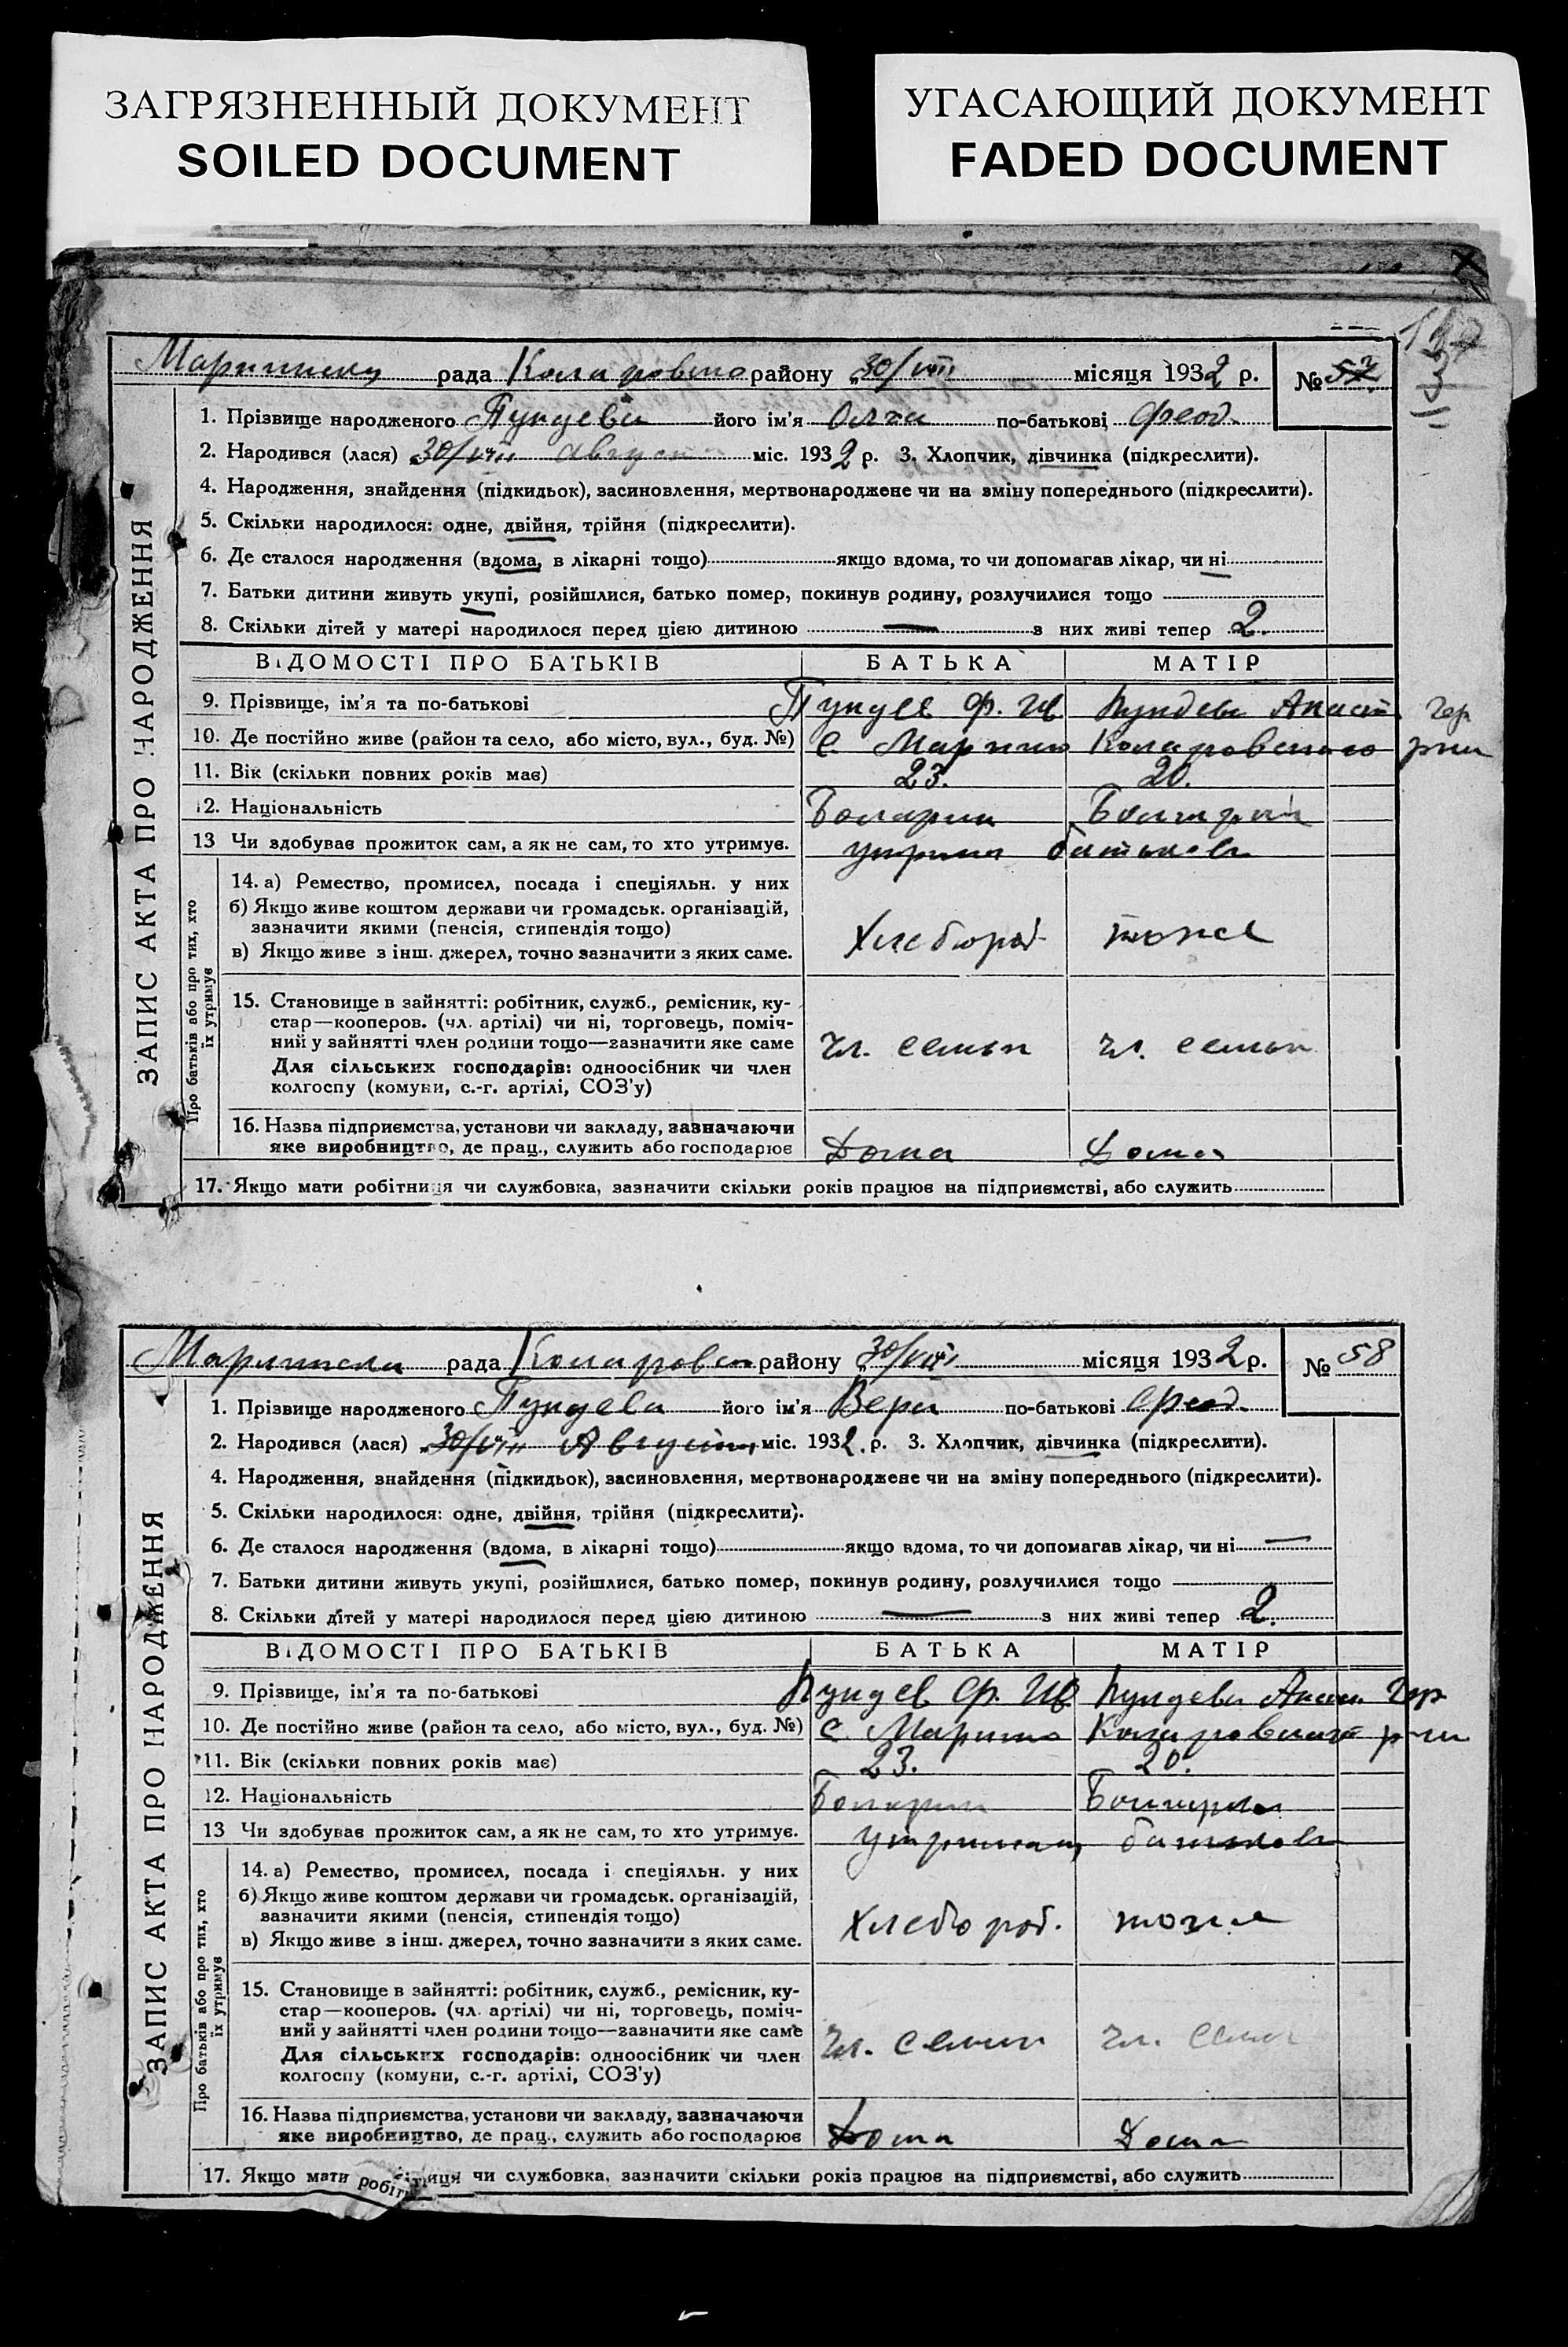 ЗАГРЯЗНЕННЫЙ ДОКУМЕНТ
SOILED DOCUMENT
УГАСАЮЩИЙ ДОКУМЕНТ
FADED DOCUMENT
ЗАПИС АКТА ПРО НАРОДЖЕННЯ
рада Коларовсько району „30/VIII місяця 1932 р. №
1. Прізвище народженого Пундева його ім'я Ольга по-батькові Феод.
2. Народився (лася) 30/VIII август міс. 1932 р. 3. Хлопчик, дівчинка (підкреслити).
4. Народження, знайдення (підкидьок), засиновлення, мертвонароджене чи на зміну попереднього (підкреслити).
5. Скільки народилося: одне, двійня, трійня (підкреслити).
6. Де сталося народження (вдома, в лікарні тощо) якщо вдома, то чи допомагав лікар, чи ні
7. Батьки дитини живуть укупі, розійшлися, батько помер, покинув родину, розлучилися тощо
8. Скільки дітей у матері народилося перед цією дитиною — з них живі тепер 2.
ВІДОМОСТІ ПРО БАТЬКІВ БАТЬКА МАТІР
9. Прізвище, ім'я та по-батькові Пундев Ф. Ив Пундева Анаст
10. Де постійно живе (район та село, або місто, вул., буд. №) с. Марино Коларовского
11. Вік (скільки повних років має) 23. 20.
12. Національність Болгарин
13 Чи здобував прожиток сам, а як не сам, то хто утримує.
Про батьків або про тих, хто їх утримує
14. а) Ремество, промисел, посада і спеціяльн. у них
б) Якщо живе коштом держави чи громадськ. організацій,
зазначити якими (пенсія, стипендія тощо)
Хлебороб. тоже
в) Якщо живе з інш. джерел, точно зазначити з яких саме.
15. Становище в зайнятті: робітник, служб., ремісник, ку-
стар—кооперов. (чл. артілі) чи ні, торговець, поміч-
ний у зайнятті член родини тощо—зазначити яке саме
Чл. семьи чл. семьи
Для сільських господарів: одноосібник чи член
колгоспу (комуни, с.-г. артілі, СОЗ'у)
16. Назва підприємства, установи чи закладу, зазначаючи
яке виробництво, де прац., служить або господарює Дома Дома
17. Якщо мати робітниця чи службовка, зазначити скільки років працює на підприємстві, або служить
ЗАПИС АКТА ПРО НАРОДЖЕННЯ
рада Коларовсько району „30/VIII місяця 1932 р. № 58
1. Прізвище народженого Пундева його ім'я Вера по-батькові Феод.
2. Народився (лася) „30/VIII Августа міс. 1932. р. 3. Хлопчик, дівчинка (підкреслити).
4. Народження, знайдення (підкидьок), засиновлення, мертвонароджене чи на зміну попереднього (підкреслити).
5. Скільки народилося: одне, двійня, трійня (підкреслити).
6. Де сталося народження (вдома, в лікарні тощо) якщо вдома, то чи допомагав лікар, чи ні —
7. Батьки дитини живуть укупі, розійшлися, батько помер, покинув родину, розлучилися тощо
8. Скільки дітей у матері народилося перед цією дитиною — з них живі тепер 2.
ВІДОМОСТІ ПРО БАТЬКІВ БАТЬКА МАТІР
9. Прізвище, ім'я та по-батькові Пундев Ф. Ив Пундева Анаст.
10. Де постійно живе (район та село, або місто, вул., буд. №) с. Марино Коларовского
11. Вік (скільки повних років має) 23. 20.
12. Національність Болгарин
13 Чи здобував прожиток сам, а як не сам, то хто утримує.
Про батьків або про тих, хто їх утримує
14. а) Ремество, промисел, посада і спеціяльн. у них
б) Якщо живе коштом держави чи громадськ. організацій,
зазначити якими (пенсія, стипендія тощо)
Хлебороб. тоже
в) Якщо живе з інш. джерел, точно зазначити з яких саме.
15. Становище в зайнятті: робітник, служб., ремісник, ку-
стар—кооперов. (чл. артілі) чи ні, торговець, поміч-
ний у зайнятті член родини тощо—зазначити яке саме
Чл. семьи чл. семьи
Для сільських господарів: одноосібник чи член
колгоспу (комуни, с.-г. артілі, СОЗ'у)
16. Назва підприємства, установи чи закладу, зазначаючи
яке виробництво, де прац., служить або господарює Дома Дома
17. Якщо мати робітниця чи службовка, зазначити скільки років працює на підприємстві, або служить